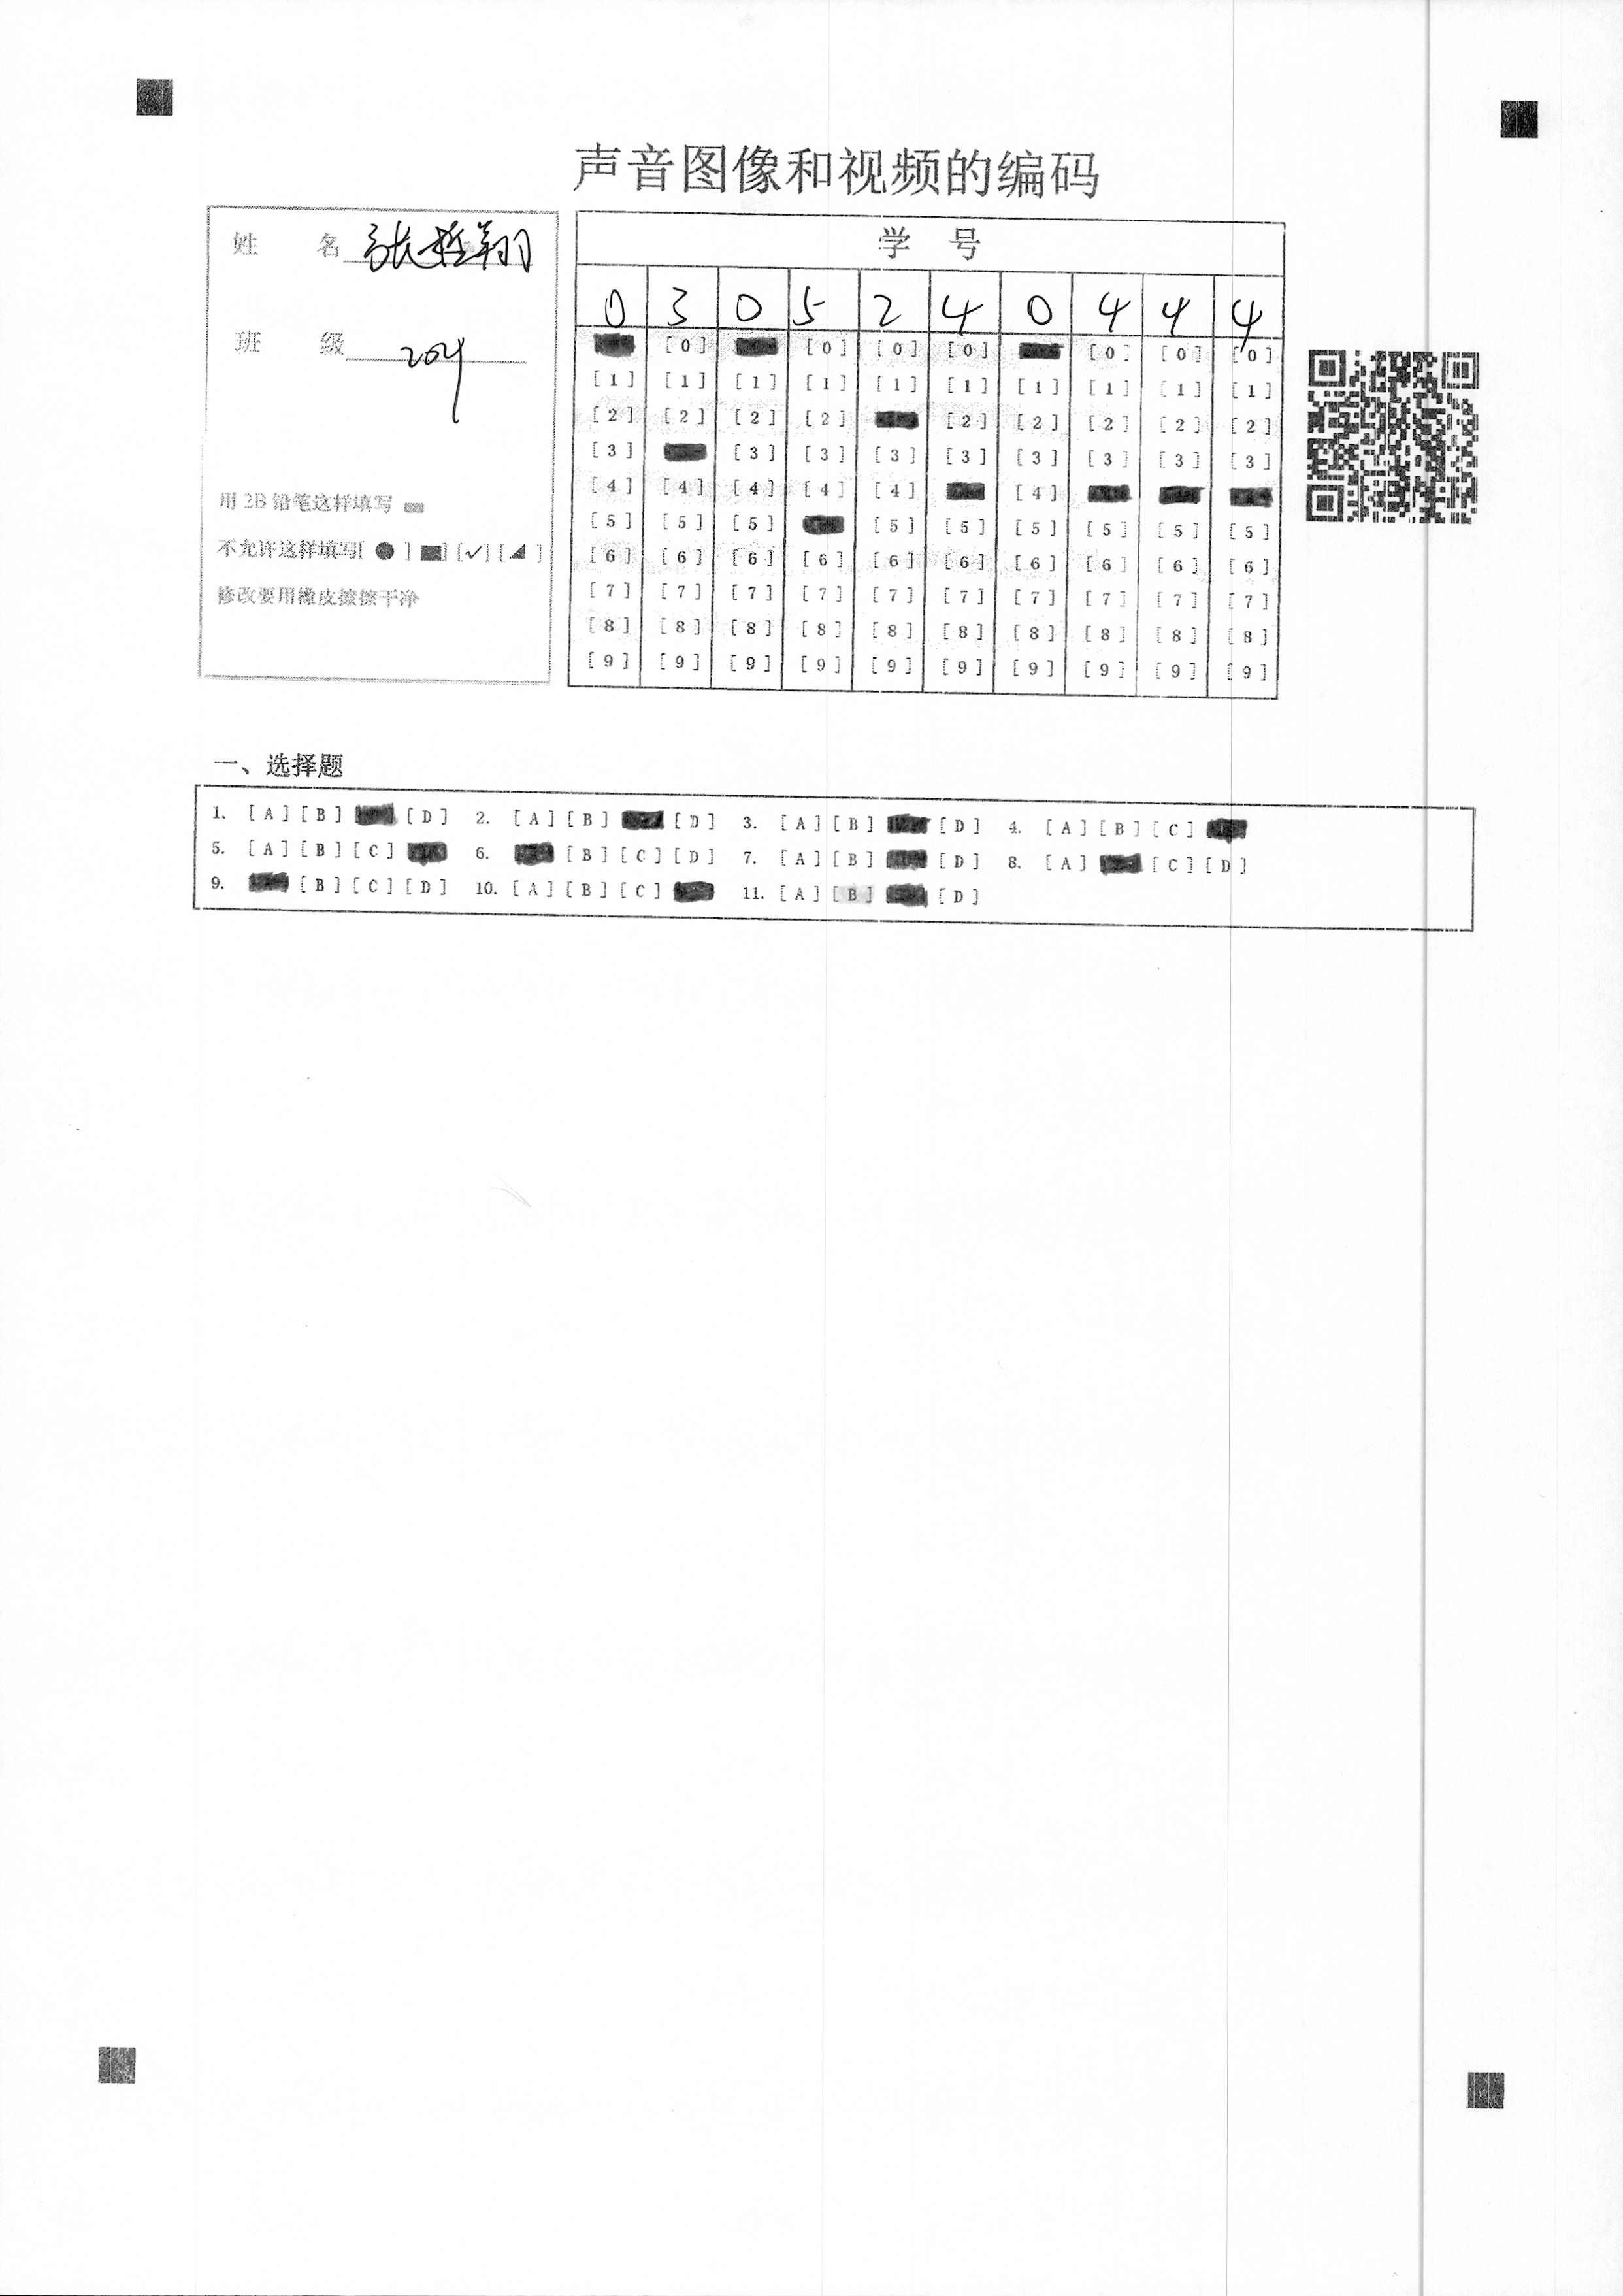 声音图像和视频的编码
姓 名 张哲翔
班 级 204
用2B铅笔这样填写
不允许这样填写[ ] [ ] [✓] [ ]
修改要用橡皮擦擦干净
学 号
0 3 0 5 2 4 0 4 4 4
[0] [0] [0] [0] [0] [0] [0]
[1] [1] [1] [1] [1] [1] [1] [1] [1] [1]
[2] [2] [2] [2] [2] [2] [2] [2] [2]
[3] [3] [3] [3] [3] [3] [3] [3] [3]
[4] [4] [4] [4] [4] [4]
[5] [5] [5] [5] [5] [5] [5] [5] [5]
[6] [6] [6] [6] [6] [6] [6] [6] [6] [6]
[7] [7] [7] [7] [7] [7] [7] [7] [7] [7]
[8] [8] [8] [8] [8] [8] [8] [8] [8] [8]
[9] [9] [9] [9] [9] [9] [9] [9] [9] [9]
一、选择题
1. [A] [B] [D] 2. [A] [B] [D] 3. [A] [B] [D] 4. [A] [B] [C]
5. [A] [B] [C] 6. [B] [C] [D] 7. [A] [B] [D] 8. [A] [C] [D]
9. [B] [C] [D] 10. [A] [B] [C] 11. [A] [B] [D]